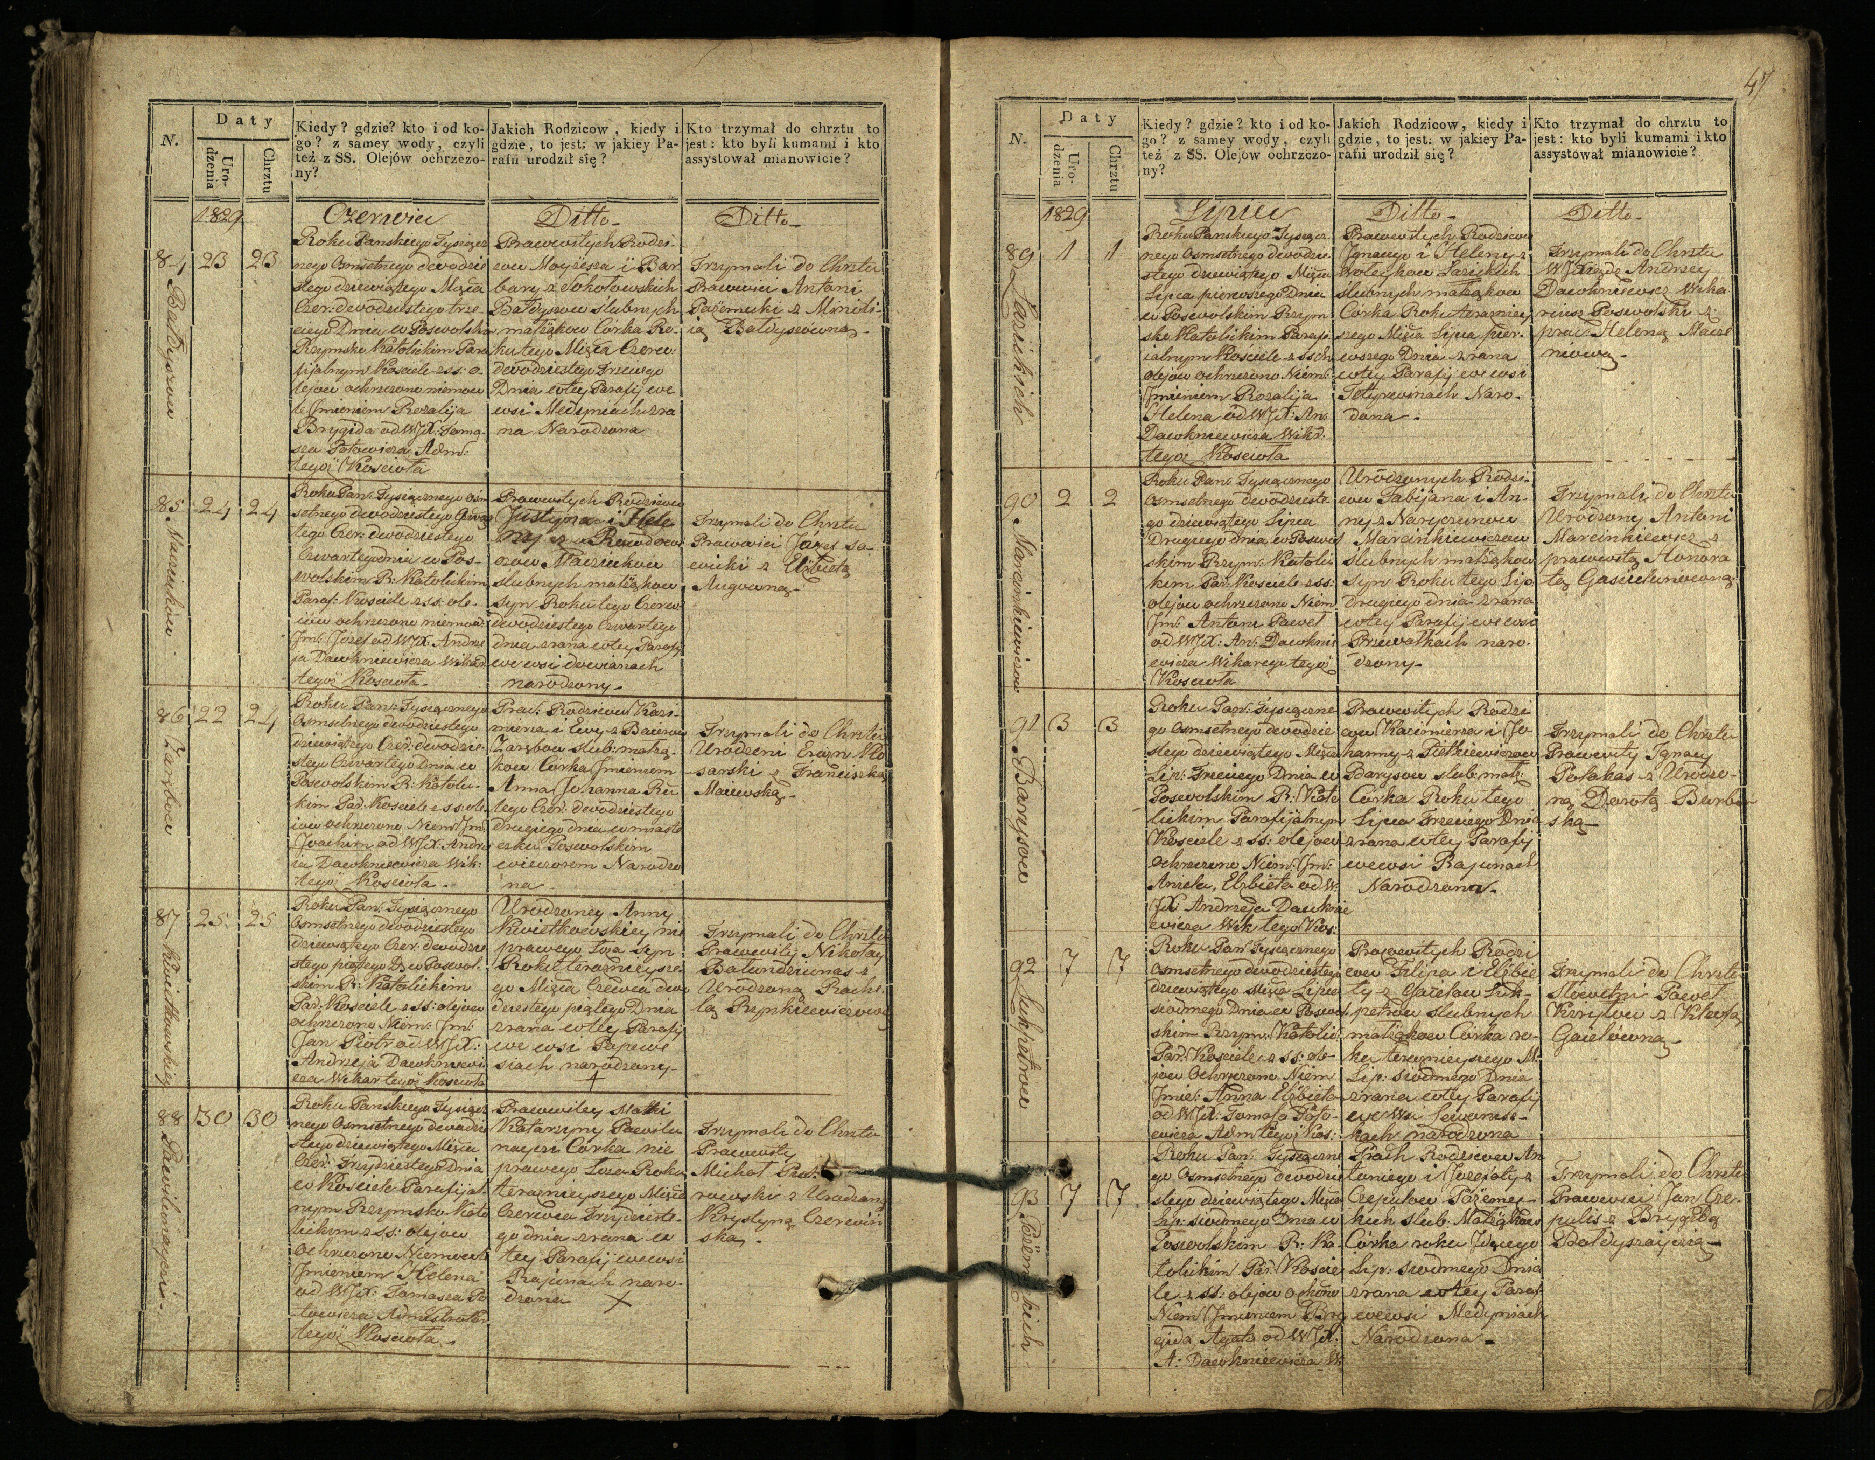 N.
Daty
Uro-
dzenia
Chrztu
Kiedy? gdzie? kto i od ko-
go? z samey wody, czyli
też z SS. Olejów ochrzczo-
ny?
Jakich Rodzicow, kiedy i
gdzie, to jest: w jakiey Pa-
rafii urodził się?
Kto trzymał do chrztu to
jest: kto byli kumami i kto
assystował mianowicie?
1829
Czerwiec
Ditto
Ditto
84
23
23
Bałdyszow
Roku Panskiego Tysiącz
nego Osmsetnego dwódzie
stego dziewiątego Mięca
Czer: dwódziestego trze-
ciego Dnia w Poswolsko
Rzymsko Katolickim Para
fijalnym Kosciele z ss: o
lejow ochrzczono niemow
le Jmieniem Rozalija
Brygida od WJX: Toma-
sza Adm:
tegoż Koscioła
Prawowitych Rodzi-
cow Moyżesza i Bar
bary z Sokołowskich
Bałdyszow slubnych
małżąkow Corka Ro-
ku tego Mięca Czerw
dwódziestego Trzeciego
Dnia w tey Parafij we
wsi Medyniach z ra
na Narodzona
Trzymali do Chrztu
Prawowici Antoni
Pożemecki z
Bałdyszowną
85
24
24
Roku Pan: Tysiącznego Osm
setnego dwódziestego dziewią
tego Czer: dwódziestego
Czwartego dnia w Pos-
wolskim R: Katolickim
Paraf: Kosciele z ss: ole-
iow ochrzczono niemow
Jm: Jozef od WJX: Andrze
ja Dawkniewicza Wikar
tegoż Koscioła
Prawowitych Rodzicow
Justyna i Hele-
ny z
slubnych małżąkow
syn Roku tego Czerw
dwódziestego Czwartego
dnia z rana w tey Paraf
we wsi
narodzony
Trzymali do Chrztu
Prawowici Jozef Sa-
wicki z Elżbietą
86
22
24
Roku Pan: Tysiącznego
Osmsetnego dwódziestego
dziewiątego Czer: dwódzie-
stego Czwartego Dnia w
Poswolskim R: Katolic-
kim Par: Kosciele z ss: ole
iow ochrzczono Niem: Jm:
Joachim od WJX: Andrze
ia Dawkniewicza Wik:
tegoż Koscioła
Praw: Rodzicow Kazi-
mierza i Ewy z
slub: małżą-
kow Corka Jmieniem
Anna Johanna Ro
tego Czer: dwódziestego
drugiego dnia w miaste
czku Poswolskim
wieczorem Narodzo
na
Trzymali do Chrztu
Urodzeni Erazm Ko
sarski z Franciszką
Macewską
87
25
25
Kwietkowskiey
Roku Pan: Tysiącznego
Osmsetnego dwódziestego
dziewiątego Czer: dwódzie
stego piątego D: w Poswol-
skim R: Katolickim
Par: Kosciele z ss: olejow
ochrzczono Niem: Jm:
Jan Piotr od WJX:
Andrzeja Dawkniewi
cza Wikar tegoż Kosciola
Urodzoney Anny
Kwietkowskiey nie
prawego Łoża syn
Roku terażnieysze
go Mięca Czerwca dwó
dziestego piątego Dnia
z rana w tey Parafij
we wsi
narodzony
Trzymali do Chrztu
Prawowity Nikołay
Bałundziunas z
Urodzoną Rache
lą
88
30
30
Roku Panskiego Tysiącz
nego Osmsetnego dwódzie
stego dziewiątego Mięca
Czer: Trzydziestego Dnia
w Kosciele Parafijal-
nym Rzymsko Kato
lickim z ss: olejow
Ochrzczono Niemowle
Jmieniem Helena
od WJX: Tomasza
tegoż Kosciola
Prawowitey Matki
Katarzyny
Corka nie
prawego Łoza Roku
terażnieyszego Mięca
Czerwca Trzydzieste-
go dnia z rana w
tey Parafij we wsi
Rajunach naro-
dzona
Trzymali do Chrztu
Prawowity
Michał
z Urodzoną
Krystyną Czerwiń
ską
47
N.
Daty
Uro-
dzenia
Chrztu
Kiedy? gdzie? kto i od ko-
go? z samey wody, czyli
też z SS. Olejów ochrzczo-
ny?
Jakich Rodzicow, kiedy i
gdzie, to jest: w jakiey Pa-
rafii urodził się?
Kto trzymał do chrztu to
jest: kto byli kumami i kto
assystował mianowicie?
1829
Lipiec
Ditto
Ditto
89
1
1
Łazickich
Roku Panskiego Tysiącz
nego Osmsetnego dwódzie-
stego dziewiątego Mięca
Lipca pierwszego Dnia
w Poswolskim Rzym
sko Katolickim Parafi
ialnym Kosciele z ssch
olejow ochrzczono Niem:
Jmieniem Rozalija
Helena od WJX: An:
Dawkniewicza Wikar:
tegoż Kosciola
Prawowitych Rodzicow
Jgnacego i Heleny z
Woleykow Łazickich
slubnych małżąkow
Corka Roku terażniey
szego Mięca Lipca pier-
wszego Dnia z rana
w tey Parafij we wsi
Naro-
dzona
Trzymali do Chrztu
WJXiądz Andrzey
Dawkniewicz Wika
riusz Poswolski z
praw: Heleną
90
2
2
Marcinkiewiczow
Roku Pan: Tysiącznego
Osmsetnego dwódzieste
go dziewiątego Lipca
Drugiego dnia w Poswol
skim Rzym: Katolic
kim Par: Kosciele z ss:
olejow ochrzczono Niem
Jm: Antoni Paweł
od WJX: An: Dawknie
wicza Wikarego tegoż
Kosciola
Urodzonych Rodzi-
cow Fabijana i An-
ny z
Marcinkiewiczow
slubnych małżąkow
syn Roku tego Lip:
drugiego dnia z rana
w tey Parafij we wsi
naro-
dzony
Trzymali do Chrztu
Urodzony Antoni
Marcinkiewicz z
prawowitą Honora
tą
91
3
3
Barysow
Roku Pan: Tysiączne
go Osmsetnego dwódzie
stego dziewiątego Mięca
Lip: Trzeciego Dnia w
Poswolskim R: Kato
lickim Parafijalnym
Kosciele z ss: olejow
ochrzczono Niem: Jm:
Aniela, Elżbieta od W
JX: Andrzeja Dawknie
wicza Wik: tego Kos:
Prawowitych Rodzi
cow Kazimierza i Jo
hanny z
Barysow slub: małż:
Corka Roku tego
Lipca Trzeciego Dnia
z rana w tey Parafij
we wsi Rajunach
Narodzona
Trzymali do Chrztu
Prawowity Jgnacy
Polakas z Urodzo-
ną Dorotą Burbe
ską
92
7
7
Roku Pan: Tysiącznego
Osmsetnego dwódziestego
dziewiątego Mięca Lipca
siodmego Dnia w Poswol
skim Rzym: Katolic:
Par: Kosciele z ss: ole-
jow Ochrzczono Niem
Jmie: Anna Elżbieta
od WJX: Tomasza
Adm: tegoż Kos:
Prawowitych Rodzi
cow Filipa i Elżbie
ty z
slubnych
małżąkow Corka ro-
ku terażnieyszego M:
Lip: siodmego Dnia
z rana w tey Parafij
we wsi
narodzona
Trzymali do Chrztu
Paweł
z
93
7
7
Roku Pan: Tysiączne
go Osmsetnego dwódzie
stego dziewiątego Mięca
Lip: siodmego Dnia w
Poswolskim R: Ka-
tolickim Par: Koscie
le z ss: olejow ochrzczo
Niem: Jmieniem Bry
gida Agata od WJX:
A: Dawkniewicza W:
Rodzicow An
toniego i Jozefaty z
Czepulow
slub: Małżąkow
Corka roku
Lip: siodmego Dnia
z rana w tey Paraf
we wsi Medyniach
Narodzona
Trzymali do Chrztu
Prawowici Jan Cze-
pulis z Brygidą